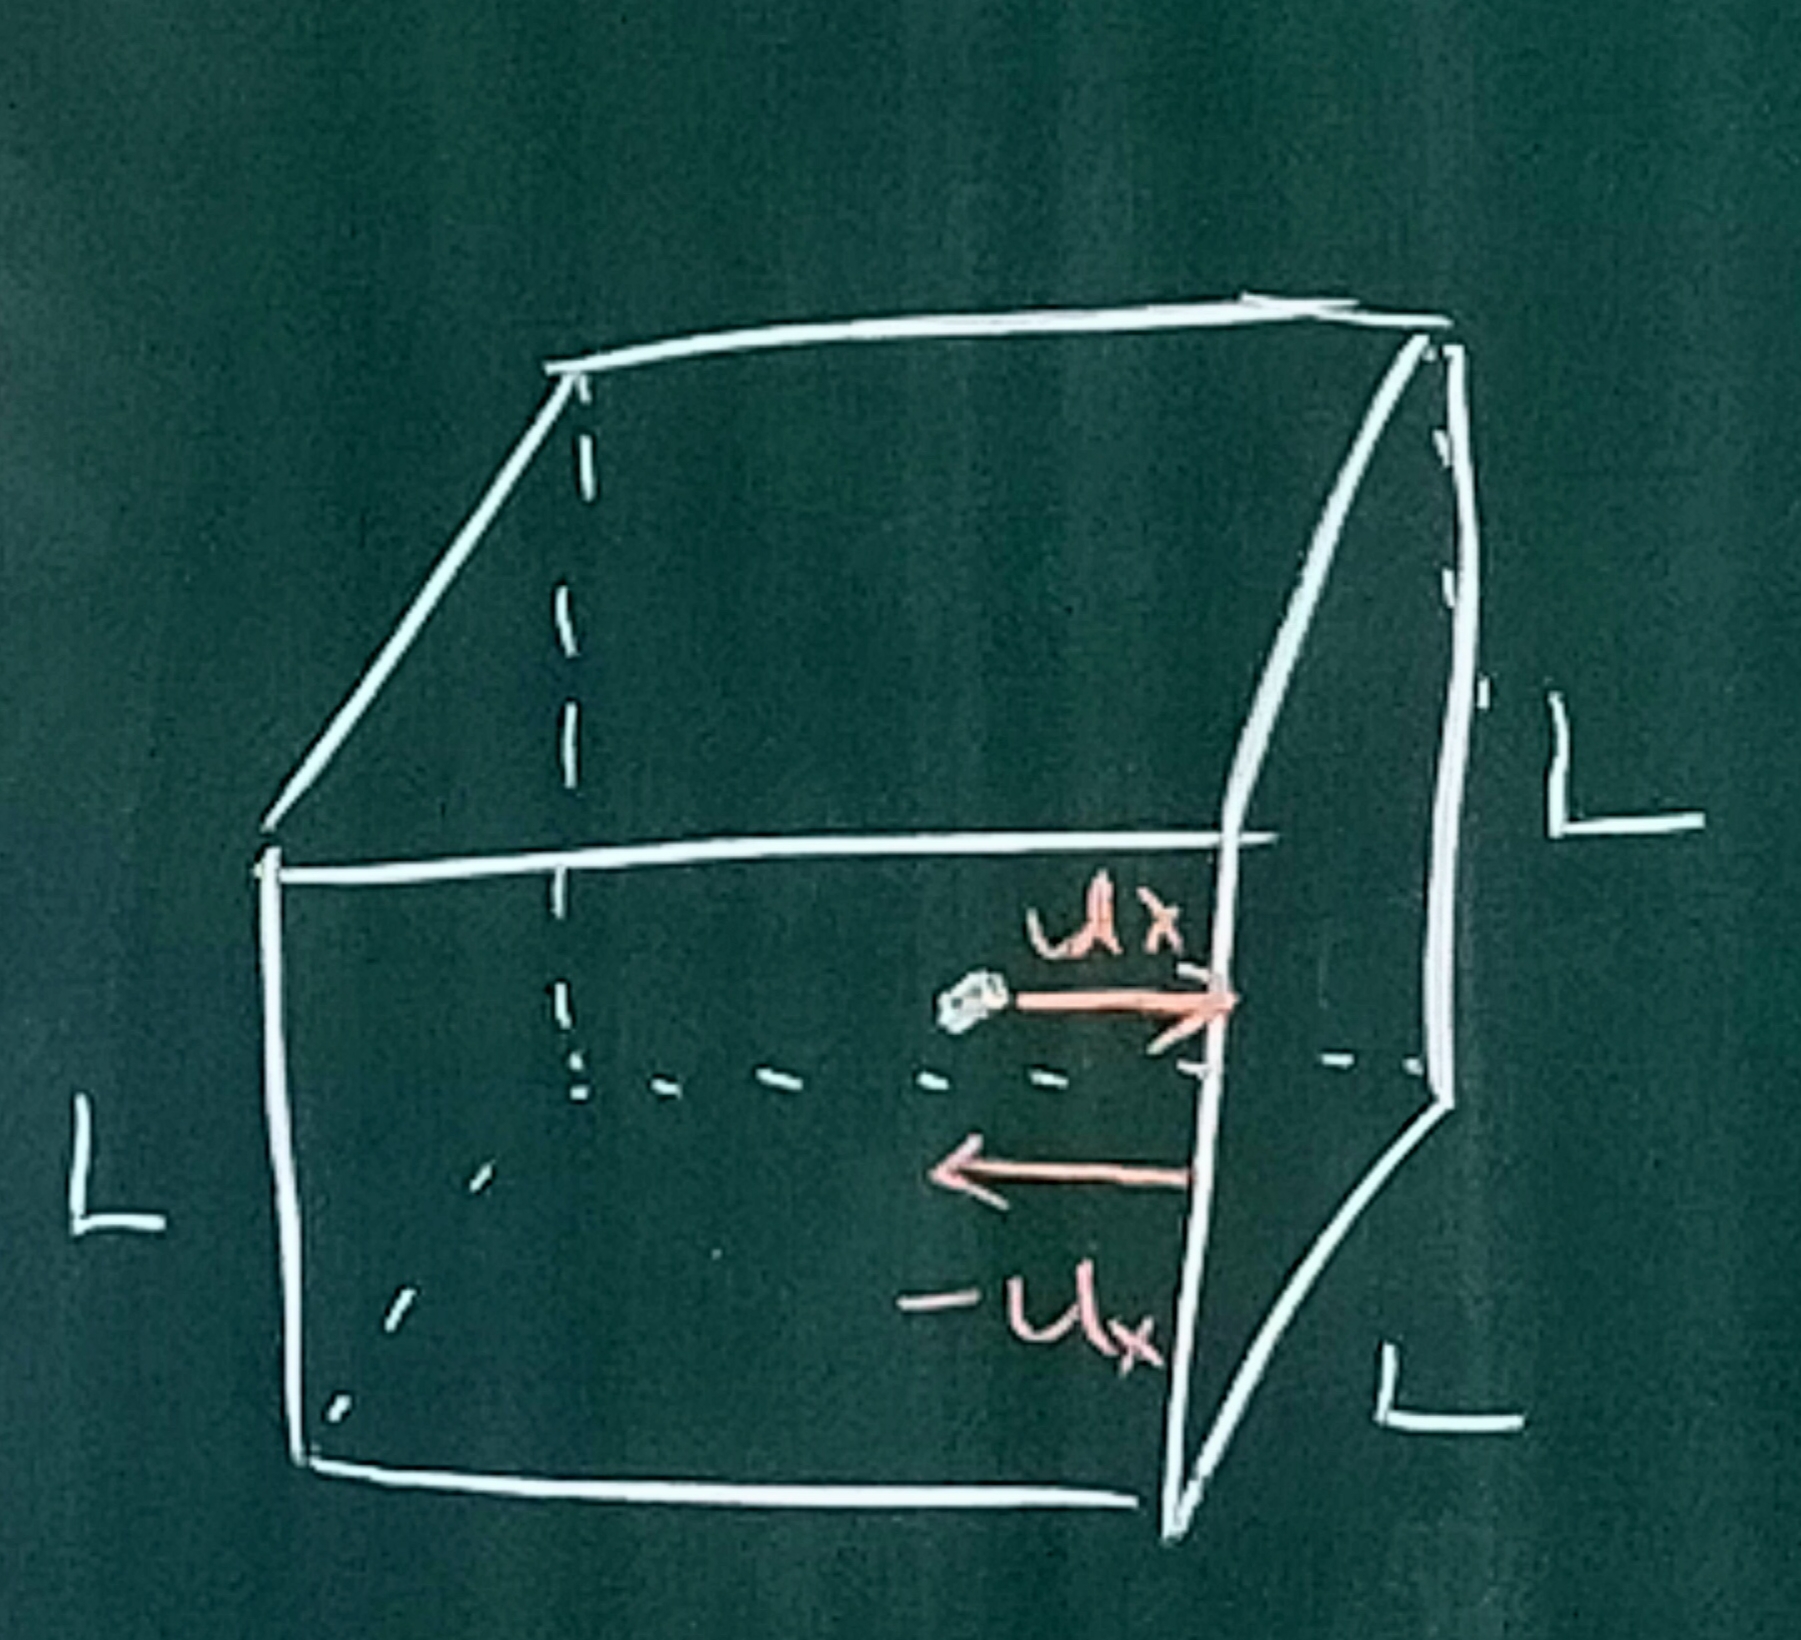 L
ux
L
-ux
L